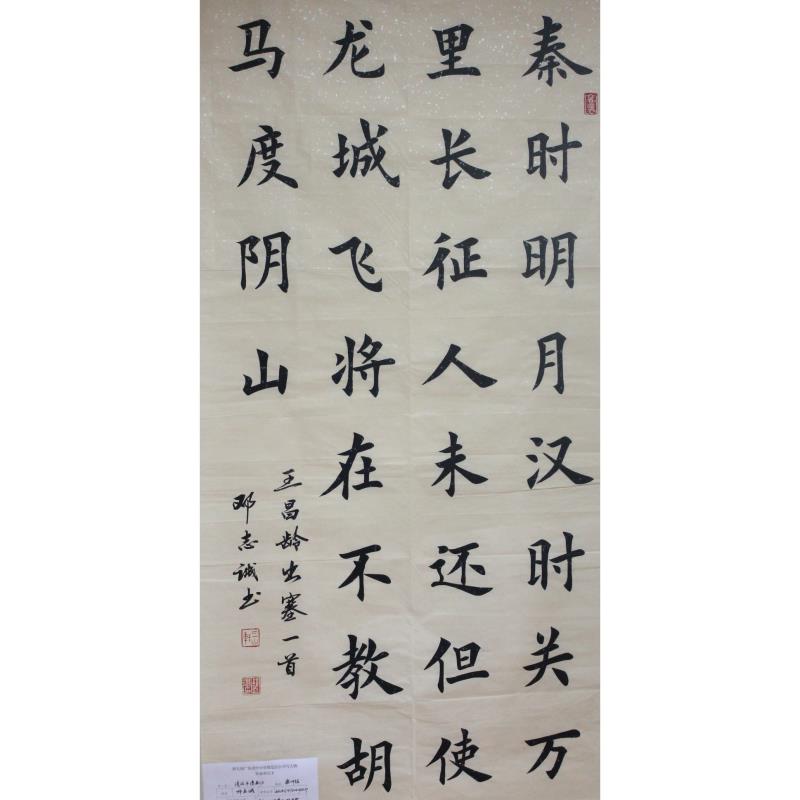 秦时明月汉时关万
里长征人未还但使
龙城飞将在不教胡
马度阴山
王昌龄出塞一首
邓志诚书